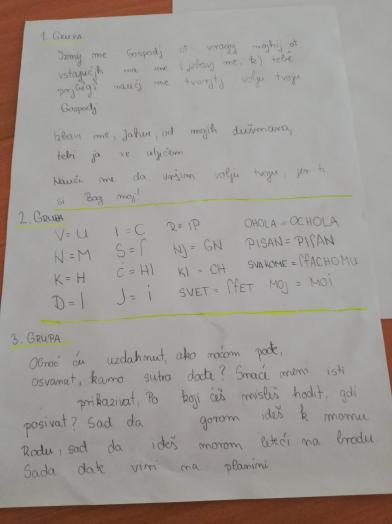 1. GRUPA
Izmij me Gospodj ot vragg mojhj ot
vstajućjh na me (izbavj me, k) tebě
prjběgj naučj me tvorjtj volju tvoju
Gospodj
Izbavi me, Jahve, od mojih dušmana,
tebi ja se utječem.
Nauči me da vršim volju tvoju, jer ti
si Bog moj!
2. GRUPA
V = U I = C R = IP OHOLA = OCHOLA
N = M S = ſ NJ = GN PISAN = PIſAN
K = H Č = HI KI = CH SVAKOME = ſſACHOMU
D = I J = i SVET = ſſET MOJ = MOi
3. GRUPA
Obnoć ću uzdahnut, ako noćom pođe,
osvanut, kamo sutra dođe? Smaće meni isti
prikazivat, Po koji ćeš misleš hodit, gdi
posivat? Sad da gorom ideš k momu
Rodu, sad da ideš morom leteći na brodu
Sada dođe vini na planini